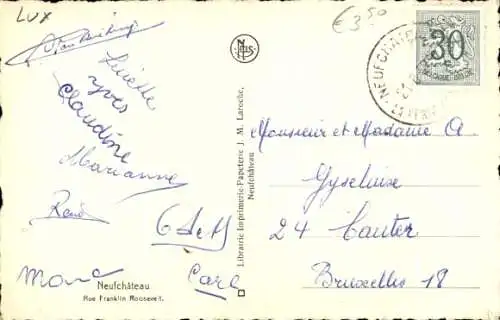 LUX
€3,50
Lucette
Yves
Claudine
Marianne
René
Marc
Carl
Neufchâteau
Rue Franklin Roosevelt.
Librairie Imprimerie-Papeterie J. M. Laroche,
Neufchâteau
NEUFCHÂTE
30
BELGIQUE-BELGIE
Monsieur et Madame A.
Gyseluise
24
Bruxelles 18